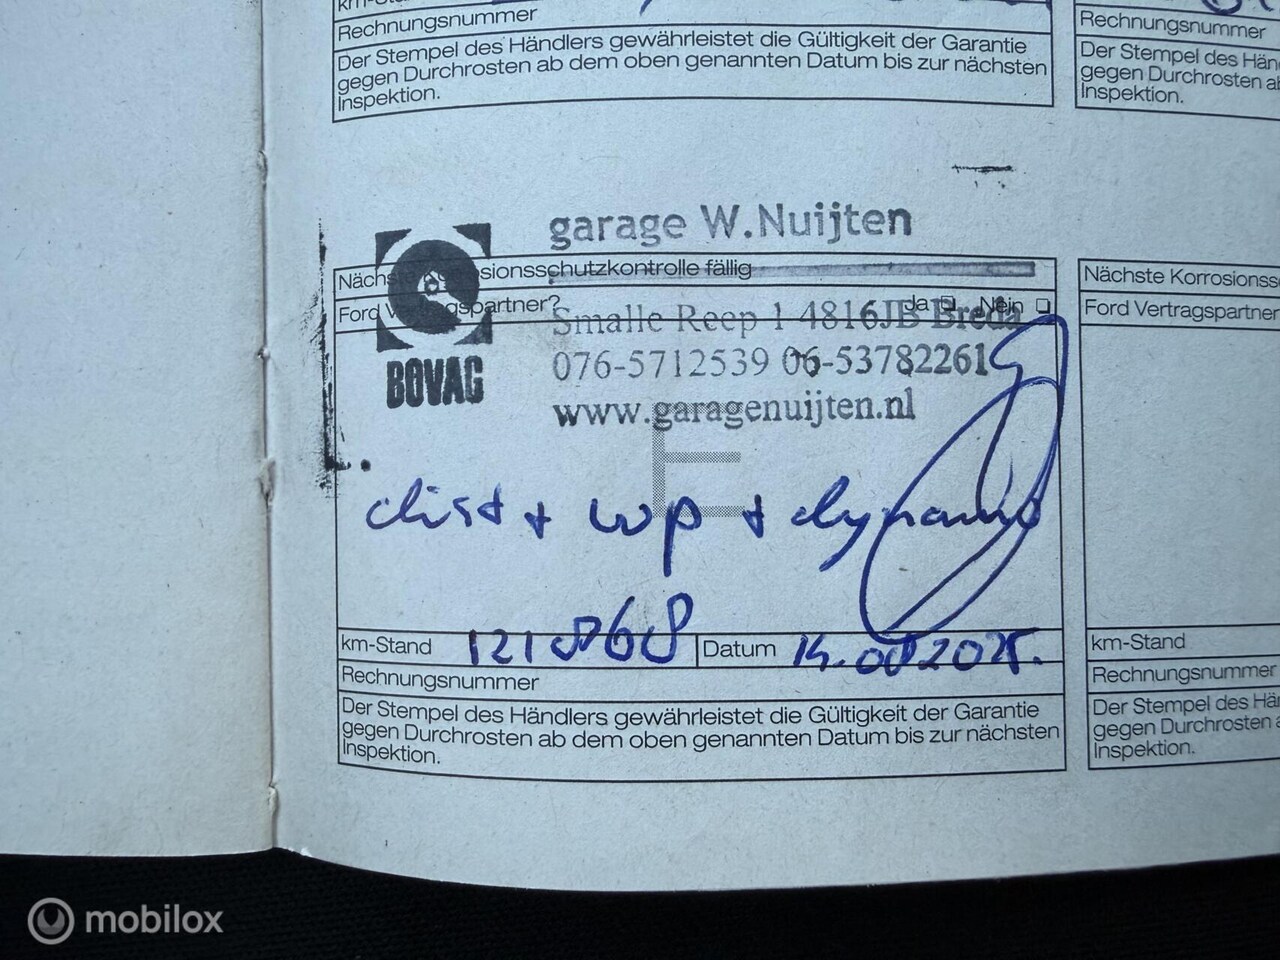 Rechnungsnummer
Der Stempel des Händlers gewährleistet die Gültigkeit der Garantie
gegen Durchrosten ab dem oben genannten Datum bis zur nächsten
Inspektion.
Rechnungsnummer
Der Stempel des Hän
gegen Durchrosten ab
Inspektion.
garage W.Nuijten
Smalle Reep 1 4816JB Breda
076-5712539 06-53782261
www.garagenuijten.nl
BOVAG
sionsschutzkontrolle fällig
Ford
gspartner?
Ja
Nein
dist + wp + dynamo
km-Stand 121868
Datum 14.08 2025.
Rechnungsnummer
Der Stempel des Händlers gewährleistet die Gültigkeit der Garantie
gegen Durchrosten ab dem oben genannten Datum bis zur nächsten
Inspektion.
Nächste Korrosionss
Ford Vertragspartner
km-Stand
Rechnungsnummer
Der Stempel des Hä
gegen Durchrosten a
Inspektion.
mobilox